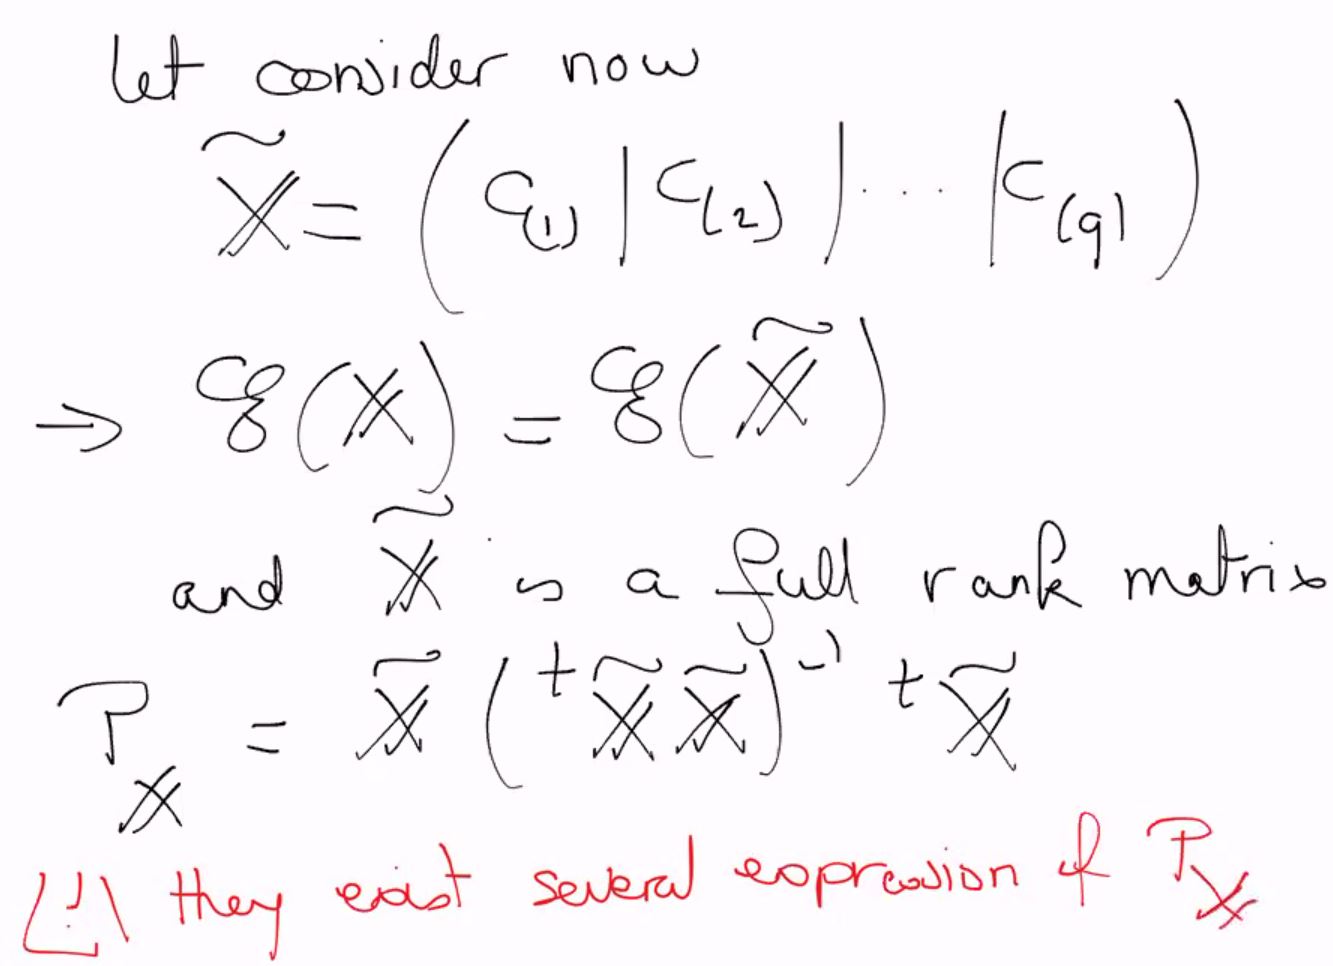 let consider now
X̃ = ( C(1) | C(2) | ... | C(q) )
→ 𝒞(X) = 𝒞(X̃)
and X̃ is a full rank matrix
P_X = X̃ ( ᵗX̃ X̃ )⁻¹ ᵗX̃
/!\ they exist several expression of P_X